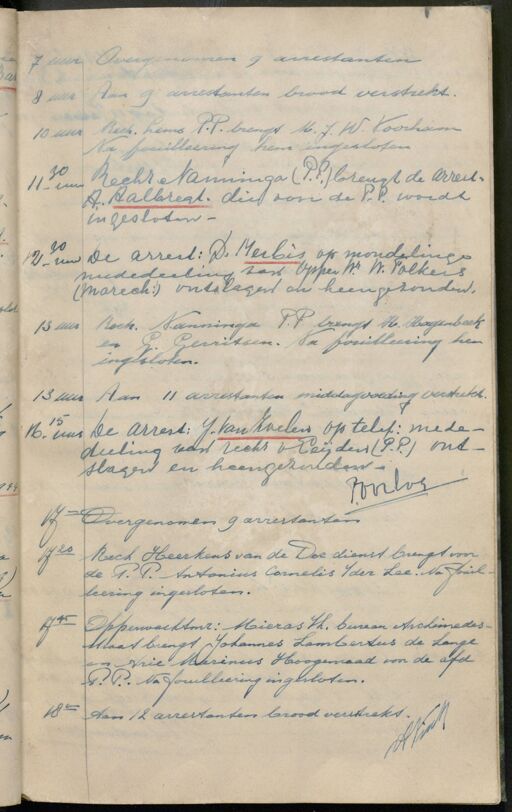 7 uur Overgenomen 9 arrestanten
8 uur Aan 9 arrestanten brood verstrekt.
10 uur Rech. P.P. brengt M. J. W. Voorham
Na fouilleering hem ingesloten
11.30 uur Rechr Nanninga (P.P.) brengt de arrest.
A. Halbregt. die voor de P.P. wordt
ingesloten -
12.30 uur De arrest: D. Merbis op mondelinge
mededeeling van Opper Wr W. Folkers
(Marech:) ontslagen en heengezonden.
13 uur Rech. Nanninga P.P brengt M. Hagenbeek
en G. Gerritsen. Na fouilleering hen
ingesloten.
13 uur Aan 11 arrestanten middagvoeding verstrekt.
16.15 uur De arrest: J. van op telef: mede-
deeling van rechr v Eijden (P.P.) ont-
slagen en heengezonden -
17 - Overgenomen 9 arrestanten
17 20 Rech Heerkens van de Doc dienst brengt voor
de P.P. Antonius Cornelis v der Lee. Na fouil-
leering ingesloten.
17 45 Opperwachtmr: Mieras Th. bureau Archimedes-
straat brengt Johannes Lambertus de Lange
en Arie Marinus Hoogemaad voor de afd
P.P. Na fouilleering ingesloten.
18 - Aan 12 arrestanten brood verstrekt.